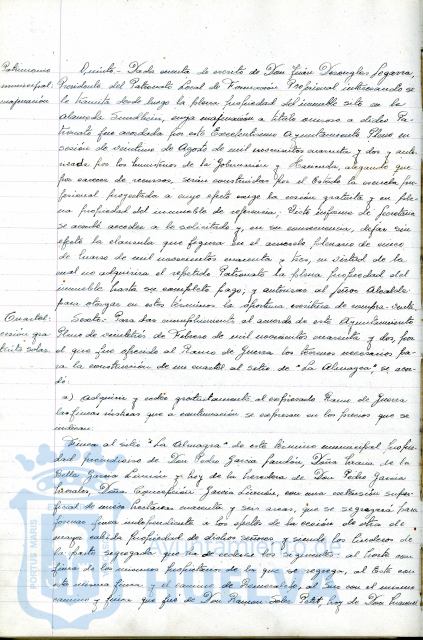 Patrimonio
municipal:
enajenación
Quinto- Dada cuenta de escrito de Don Juan Desongles Logarra,
Presidente del Patronato Local de Formación Profesional interesando se
le tramita desde luego la plena propiedad del inmueble sito en la
Alameda Sundheim, cuya enajenación a título oneroso a dicho Pa-
tronato fue acordada por este Excelentísimo Ayuntamiento Pleno en
sesión de veintiuno de Agosto de mil novecientos cuarenta y dos y auto-
rizada por los Ministerios de la Gobernación y Hacienda, alegando que
por carecer de recursos, serán construidas por el Estado la escuela pro-
fesional proyectada a cuyo efecto exige la cesión gratuita y en ple-
na propiedad del inmueble de referencia. Visto informe de Secretaría
se acuerda acceder a lo solicitado y, en su consecuencia, dejar sin
efecto la cláusula que figura en el acuerdo plenario de once
de Marzo de mil novecientos cuarenta y tres, en virtud de la
cual no adquirirá el repetido Patronato la plena propiedad del
inmueble hasta su completo pago; y autorizar al Señor Alcalde
para otorgar en estos términos la oportuna escritura de compra-venta.
Cuartel:
cesión gra-
tuita solar.
Sexto- Para dar cumplimiento al acuerdo de este Ayuntamiento
Pleno de veintitrés de Febrero de mil novecientos cuarenta y dos, por
el que fue ofrecido al Ramo de Guerra los terrenos necesarios pa-
ra la construcción de un cuartel al sitio de "La Almagra", se acor-
dó:
a) Adquirir y ceder gratuitamente al expresado Ramo de Guerra
las fincas rústicas que a continuación se expresan en los precios que se
indican:
Finca al sitio "La Almagra" de este término municipal propie-
dad proindiviso de Don Pedro García Jaudón, Doña María de la
Bella García Limón y hoy de la heredera de Don Pedro García
Morales, Doña Concepción García Limón, con una extensión super-
ficial de cinco hectáreas cuarenta y seis áreas, que se segregará para
formar finca independiente a los efectos de la cesión de otra de
mayor cabida propiedad de dichos señores y siendo los linderos de
la parte segregada que ha de cederse los siguientes: al Norte con
finca de los mismos propietarios de la que se segrega, al Este con
esta misma finca y el camino de Rameraleto, al Sur con el mismo
camino y finca que fué de Don Ramon Soler Petit, hoy de Don Manuel
PORTUS MARIS